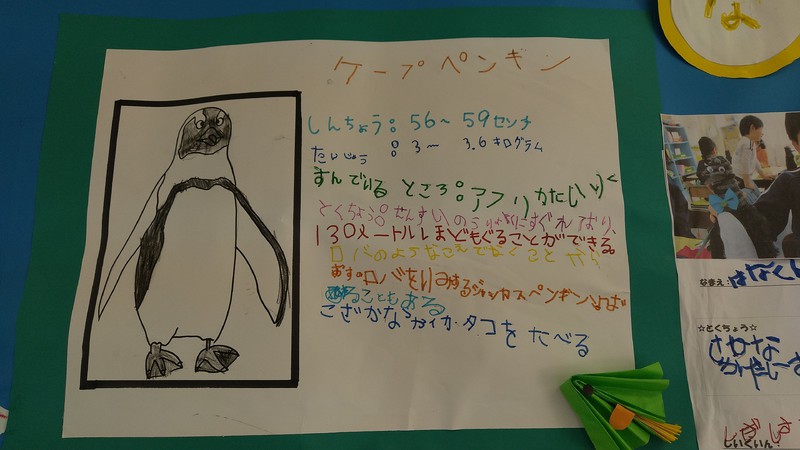 ケープペンギン
しんちょう:56〜59センチ
たいじゅう:3〜3.6キログラム
すんでいるところ:アフリカたいりく
とくちょう:せんすいのうりょくにすぐれており、
130メートルほどもぐることができる。
ロバのようなこえでなくことから
おす:ロバをいみするジャッカスペンギンとよば
れることもある
こざかな イカ・タコをたべる
な
なまえ:はなくん
☆とくちょう☆
さかな
しいくいん: